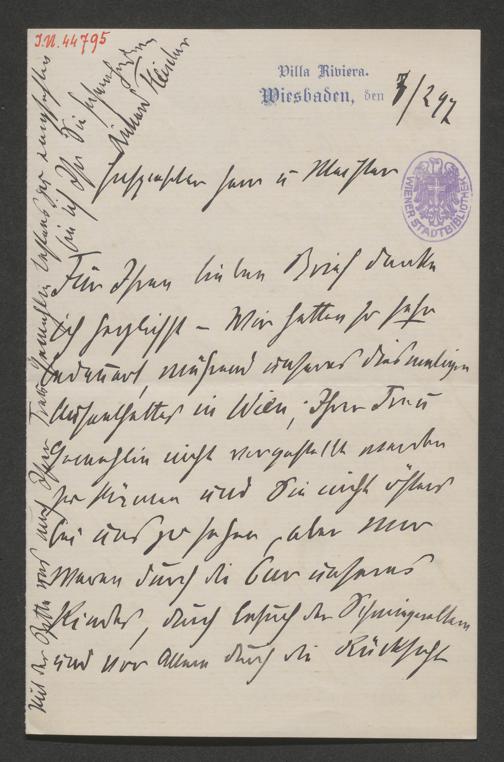 J.N. 44795
Villa Riviera.
Wiesbaden, den 3/2 97
WIENER STADTBIBLIOTHEK
Hochgeehrter Herr u Meister
Für Ihren lieben Brief danke
ich herzlichst – Wir hatten so sehr
bedauert, während unseres diesmaligen
Aufenthaltes in Wien, Ihrer Frau
Gemahlin nicht vorgestellt werden
zu können und Sie nicht öfters
bei uns zu sehen, aber wir
waren durch die Cur unseres
Kindes, durch Besuch der Schwiegereltern
und vor Allem durch die Rücksicht
Mit der Bitte uns auch Ihrer Frau Gemahlin bestens zu empfehlen
bin ich Ihr Sie